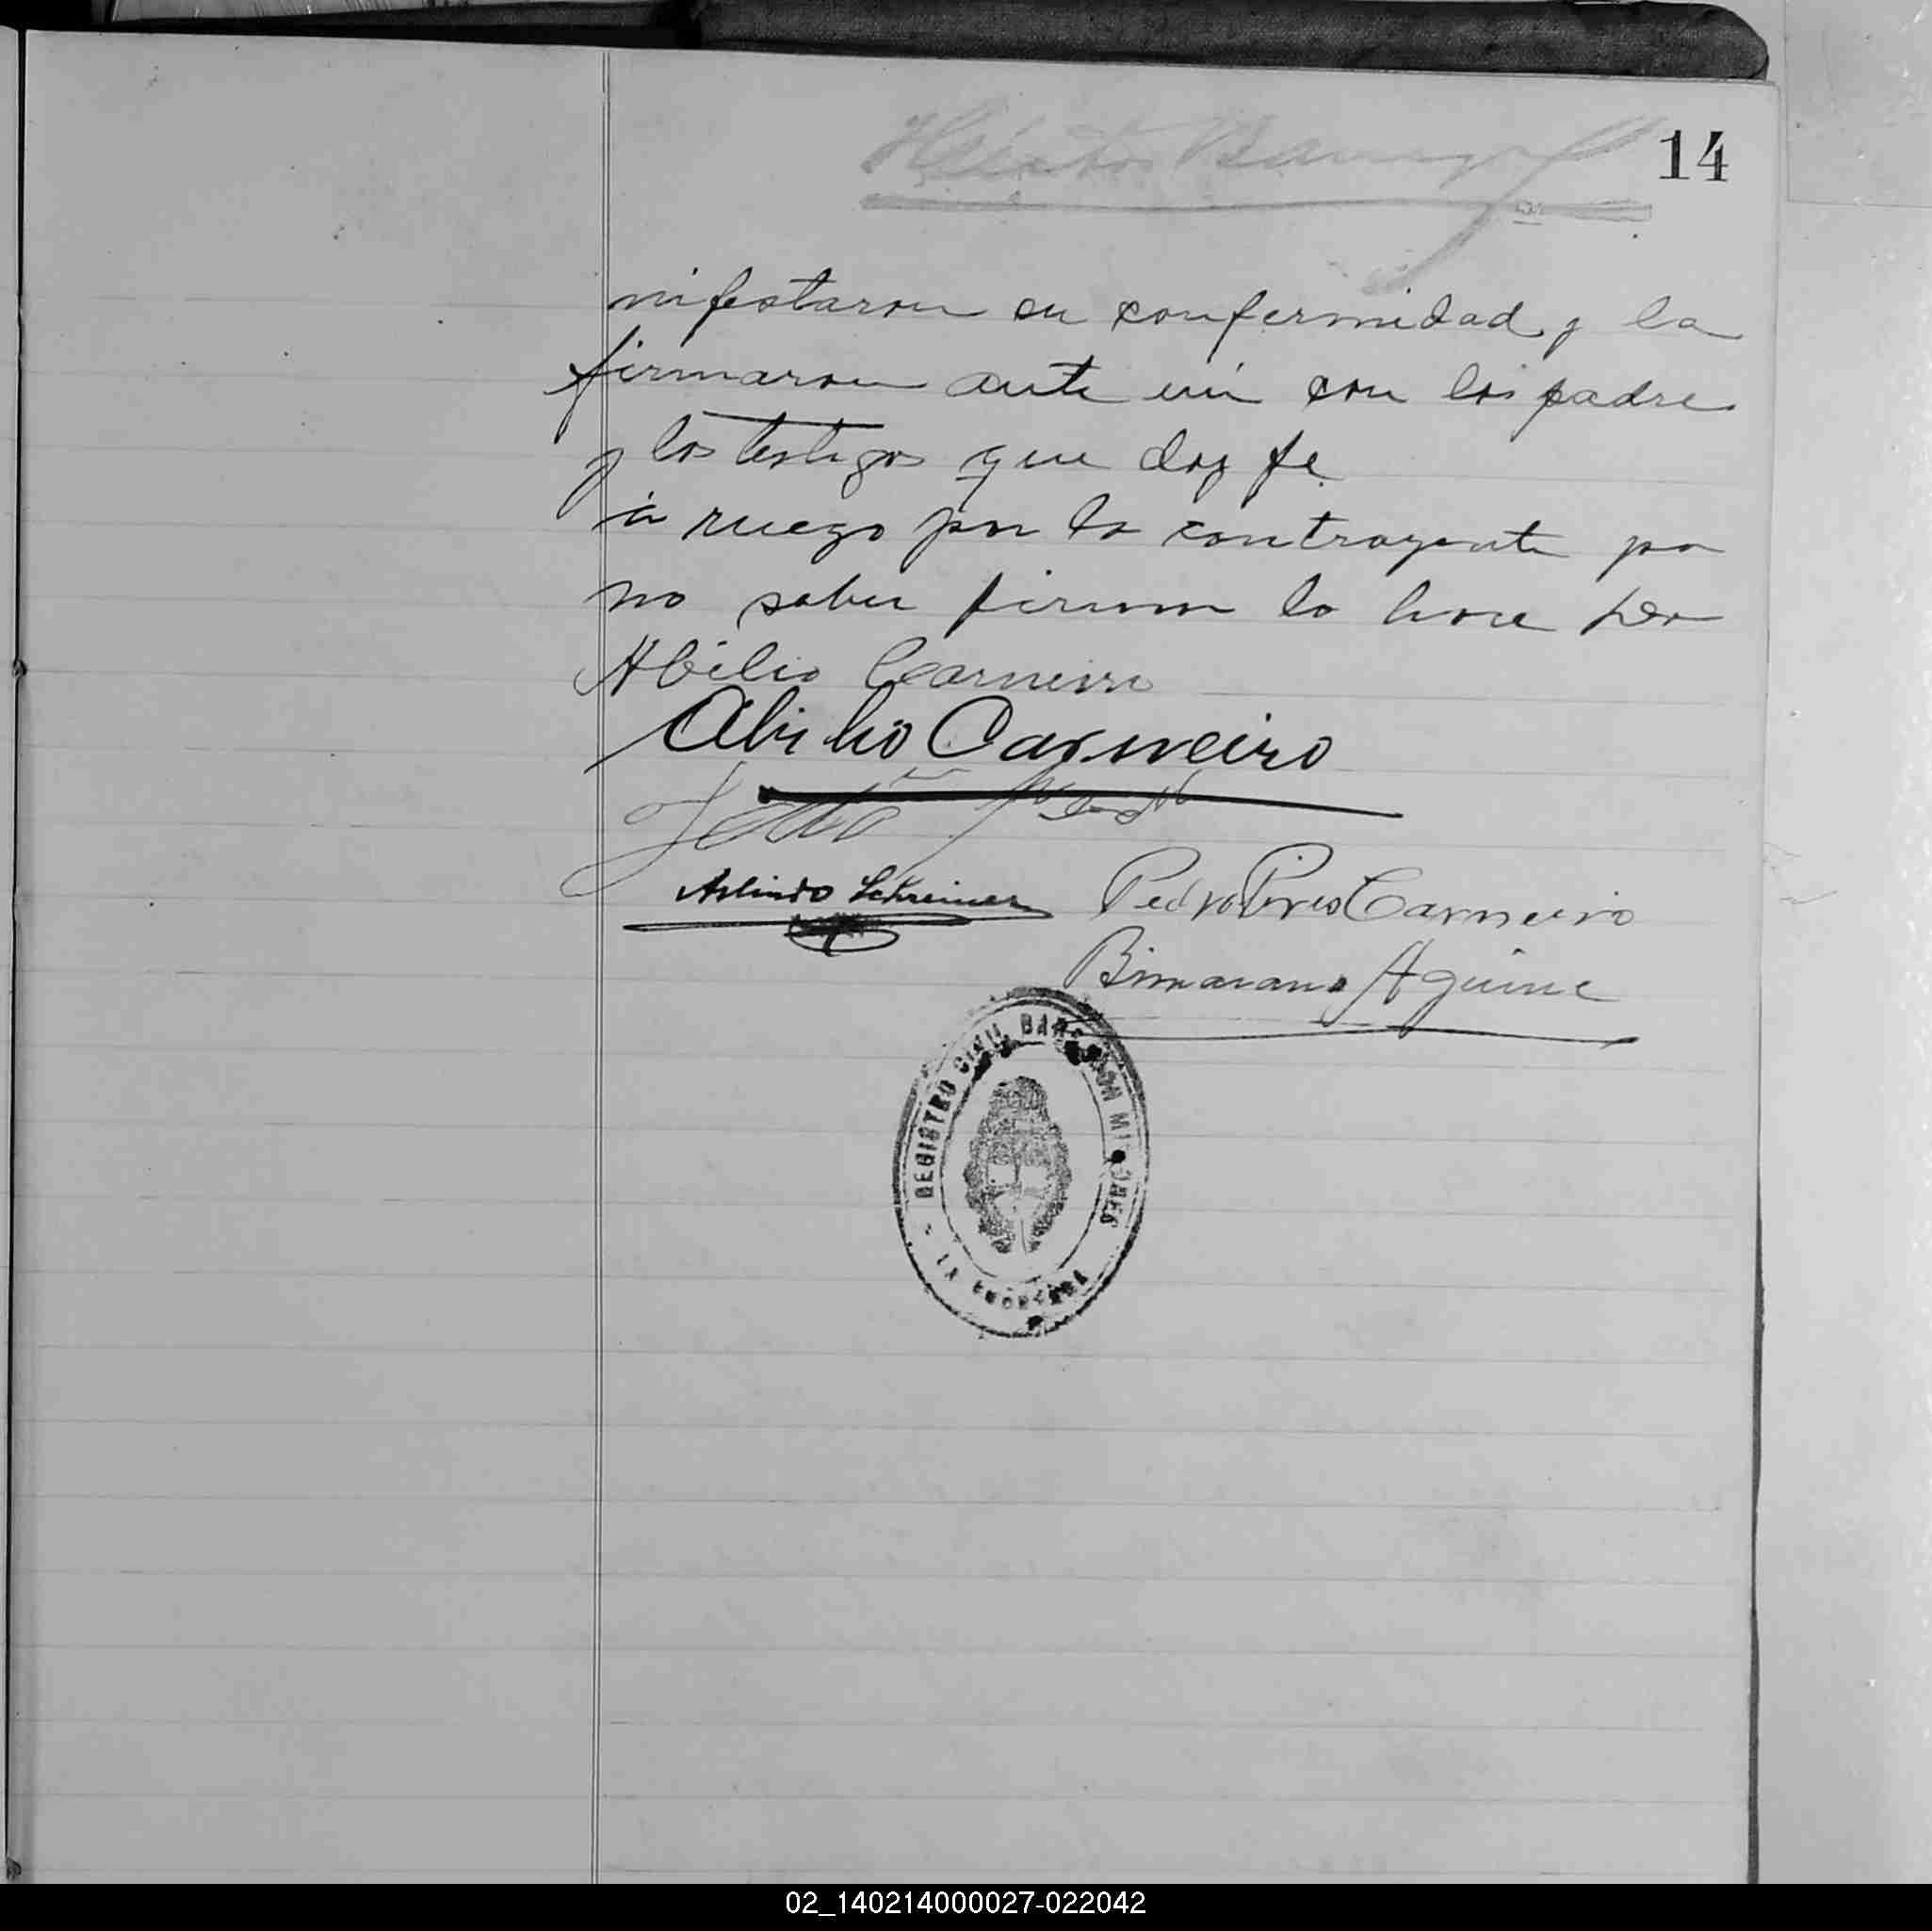 14
nifestaron su confermidad y la
firmaron ante mi con los padre
y los testigos que doy fe
á ruego por la contrayente por
no saber firmar lo hace Don
Abilio Carneiro
Abilio Carneiro
Arlindo Schreiner
Pedro Pires Carneiro
Bimarano Aguirre
REGISTRO CIVIL
LA
02_140214000027-022042